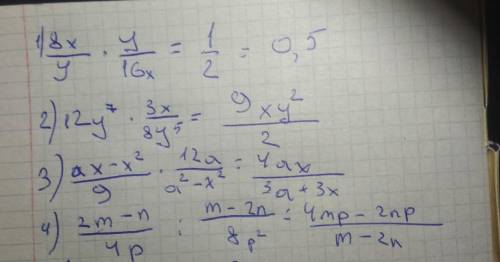 1) 8x/y · y/16x = 1/2 = 0,5
2) 12y⁷ · 3x/8y⁵ = 9xy²/2
3) ax-x²/9 · 12a/a²-x² = 4ax/3a+3x
4) 2m-n/4p : m-2n/8p² = 4mp-2np/m-2n